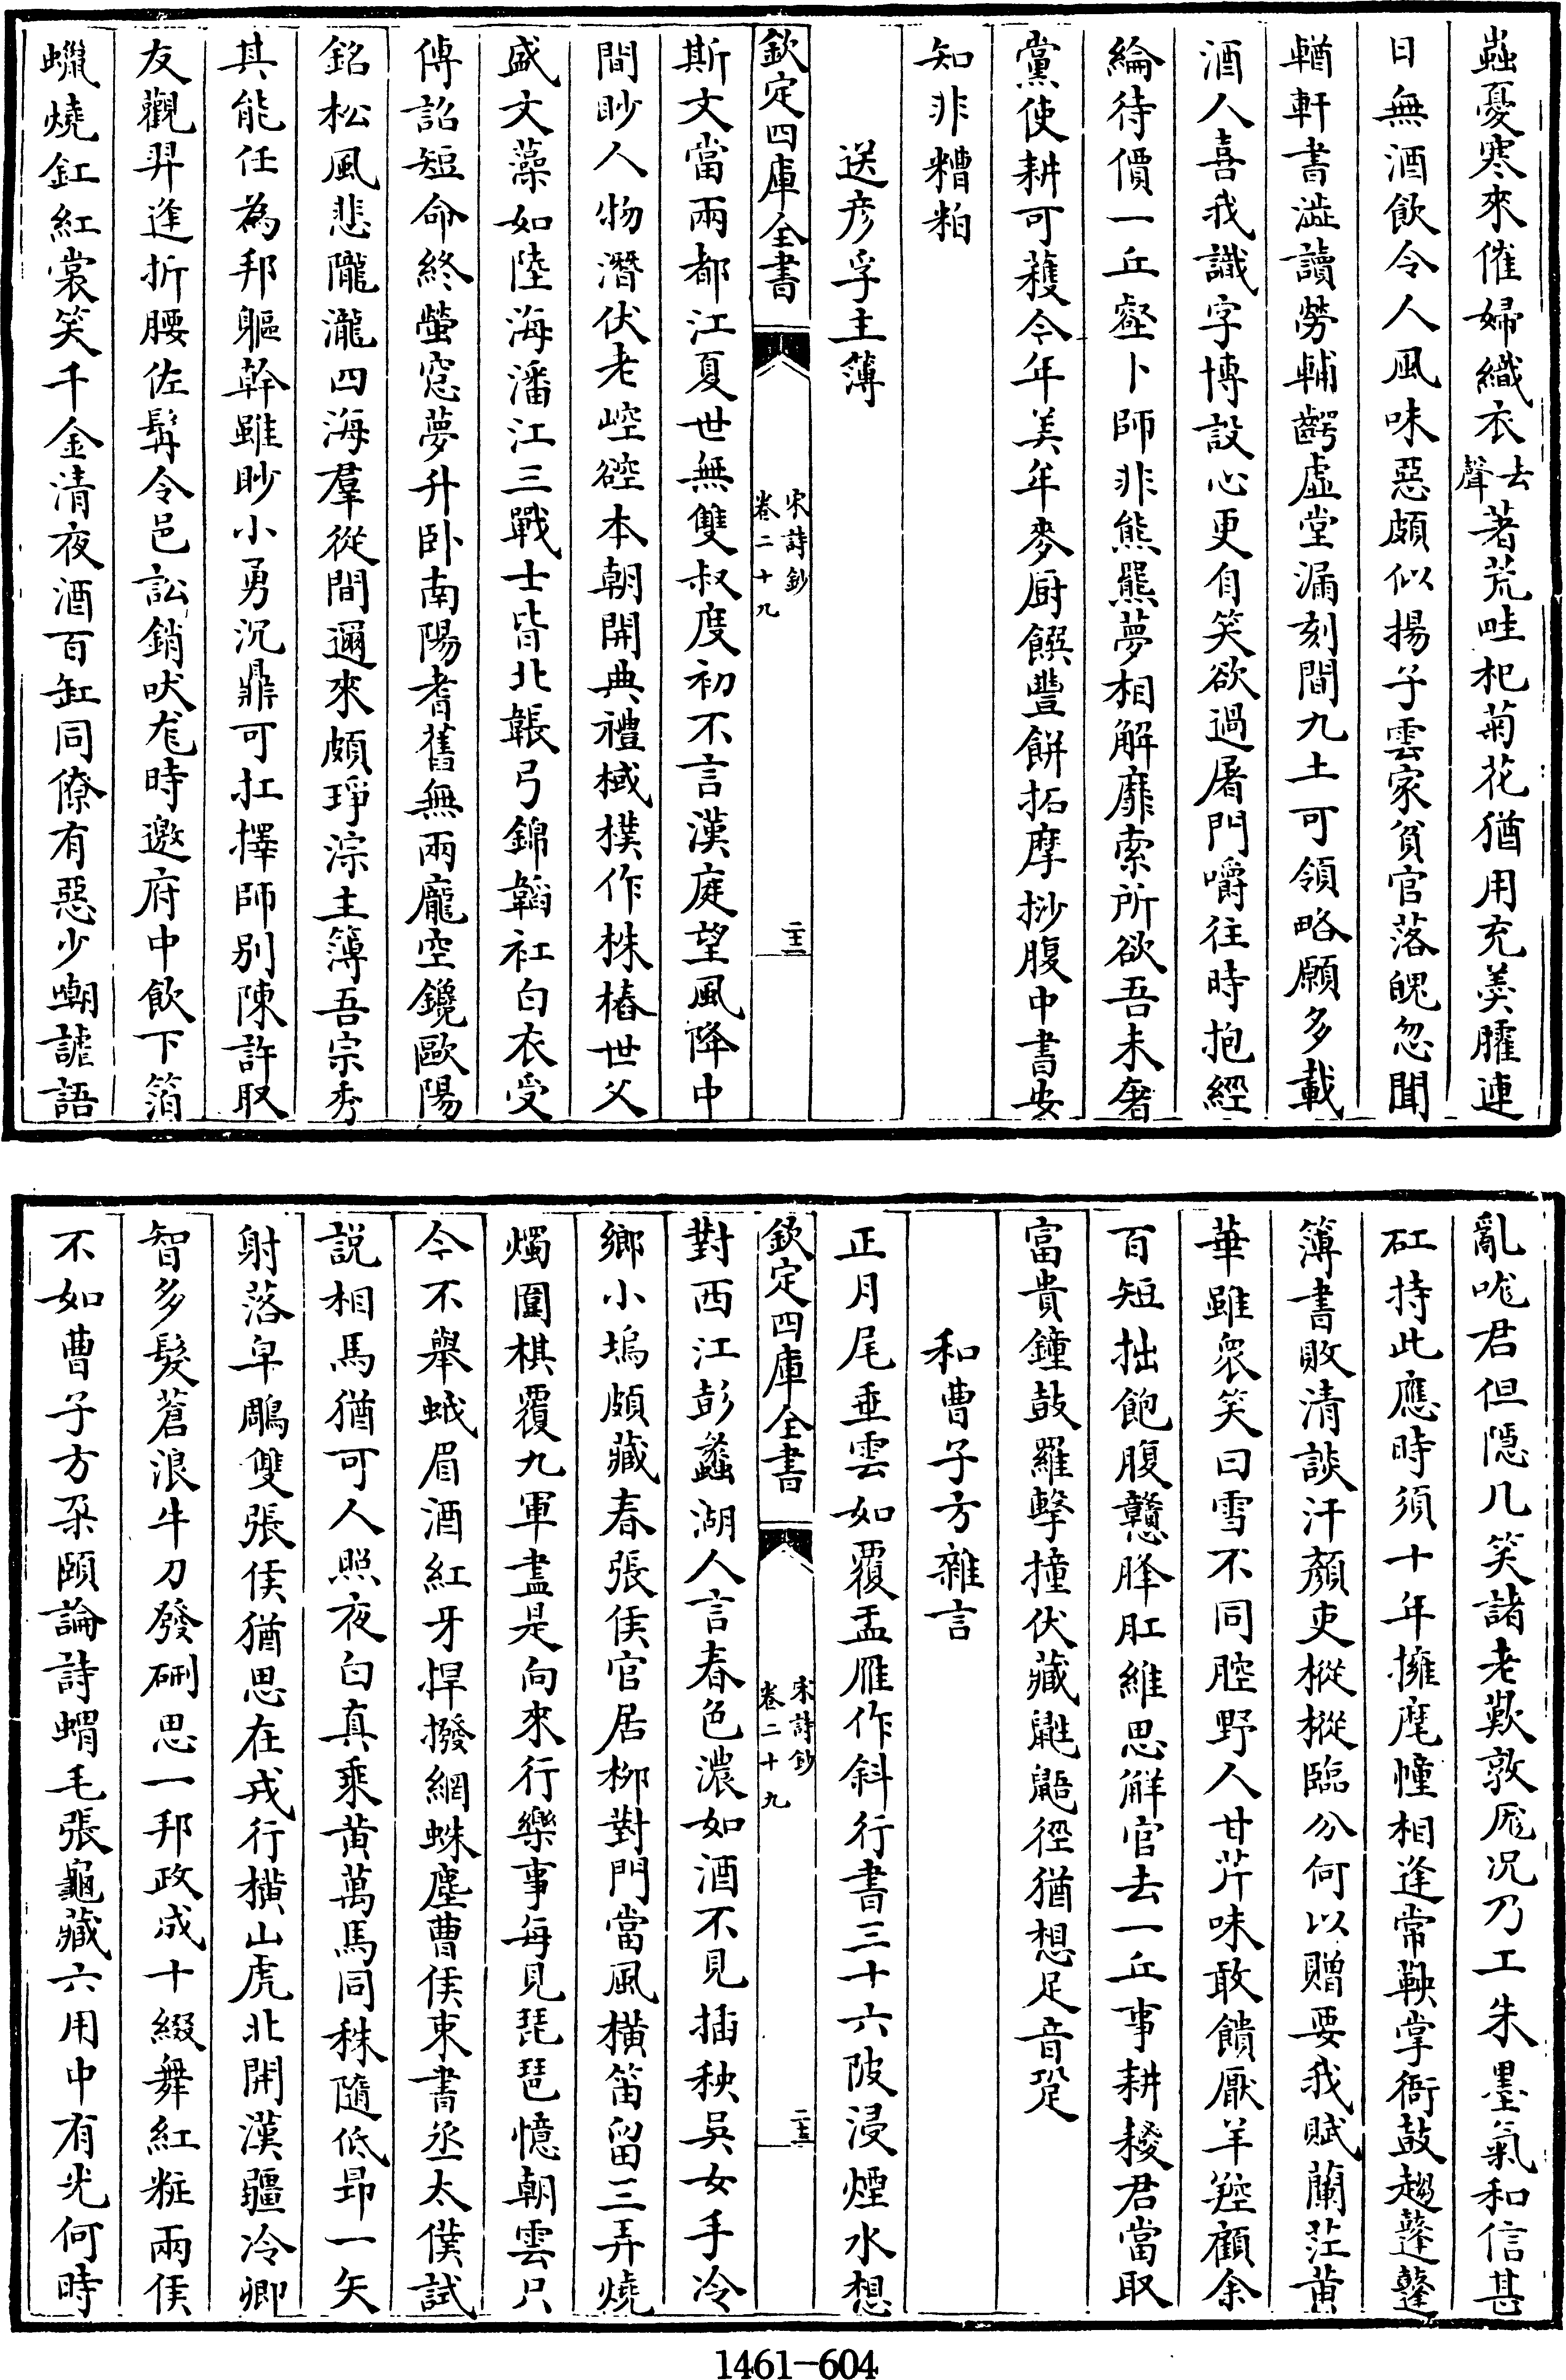 蟲憂寒來催婦織衣去聲著荒畦杞菊花猶用充羮臛連
日無酒飲令人風味惡頗似揚子雲家貧官落魄忽聞
輶軒書澁讀勞輔齶虛堂漏刻間九土可領略願多載
酒人喜我識字博設心更自笑欲過屠門嚼往時抱經
綸待價一丘壑卜師非熊羆夢相解靡索所欲吾未奢
黨使耕可穫今年美牟麥厨饌豐餅拓摩挱腹中書安
知非糟粕
送彦孚主薄
欽定四庫全書
宋詩鈔
卷二十九
二十三
斯文當兩都江夏世無雙叔度初不言漢庭望風降中
間眇人物潛伏老崆䃔本朝開典禮棫樸作株樁世父
盛文藻如陸海潘江三戰士皆北韔弓錦韜杠白衣受
傳詔短命終螢窓夢升卧南陽耆舊無兩龎空鑱歐陽
銘松風悲隴瀧四海羣從間邇來頗琤淙主簿吾宗秀
其能任為邦軀幹雖眇小勇沉鼎可扛擇師别陳許取
友觀羿逄折腰佐髯令邑訟銷吠尨時邀府中飲下箔
蠟燒釭紅裳笑千金清夜酒百缸同僚有惡少嘲謔語
亂哤君但隠几笑諸老歎敦厖况乃工朱墨氣和信甚
矼持此應時須十年擁麾幢相逢常鞅掌衙鼓趨蓬蓬
簿書敗清談汗顏吏樅樅臨分何以贈要我賦蘭茳黄
華雖衆笑白雪不同腔野人甘芹味敢饋厭羊羫顧余
百短拙飽腹戇胮肛維思解官去一丘事耕耰君當取
富貴鐘鼓羅擊撞伏藏鼪鼯徑猶想足音跫
和曹子方雜言
正月尾垂雲如覆盂雁作斜行書三十六陂浸煙水想
欽定四庫全書
宋詩鈔
卷二十九
二十三
對西江彭蠡湖人言春色濃如酒不見插秧吳女手冷
鄉小塢頗藏春張侯官居柳對門當風橫笛留三弄燒
燭圍棋覆九軍盡是向來行樂事每見琵琶憶朝雲只
今不舉蛾眉酒紅牙捍撥網蛛塵曹侯束書丞太僕試
説相馬猶可人照夜白真乘黄萬馬同秣隨低昻一矢
射落皁鵰雙張侯猶思在戎行橫山虎北開漢疆冷卿
智多髮蒼浪牛刀發硎思一邦政成十綴舞紅粧兩侯
不如曹子方朶頤論詩蝟毛張龜藏六用中有光何時
1461-604